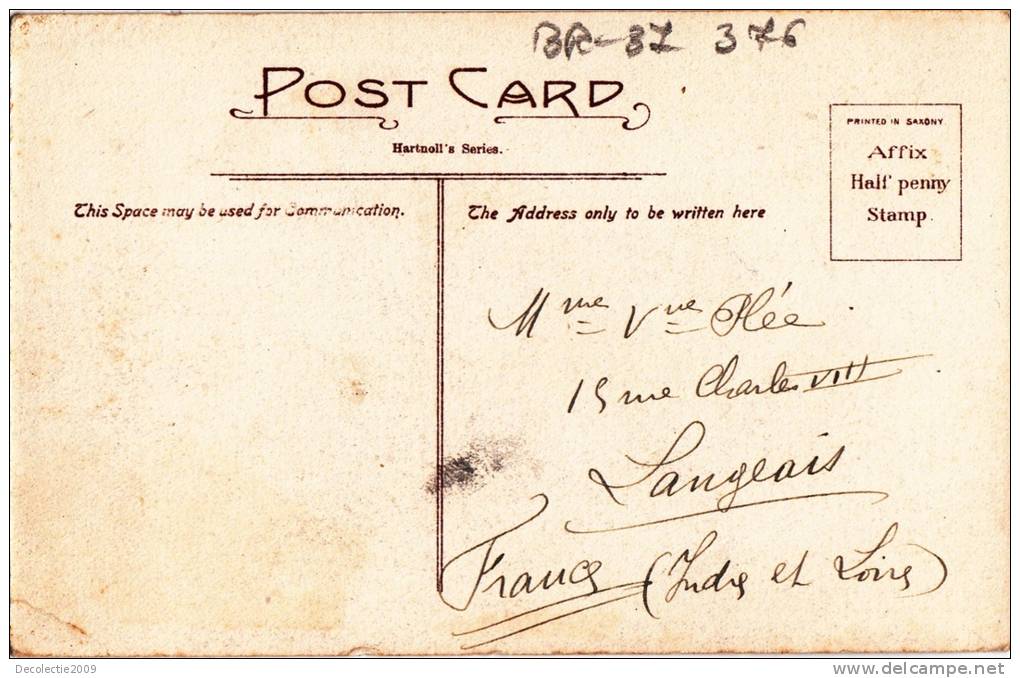 BR-37 376
POST CARD
Hartnoll's Series.
PRINTED IN SAXONY
Affix
Half penny
Stamp.
This Space may be used for Communication.
The Address only to be written here
Mme Vve Plée
15 rue Charles VIII
Langeais
France (Indre et Loire)
Decolectie2009
www.delcampe.net